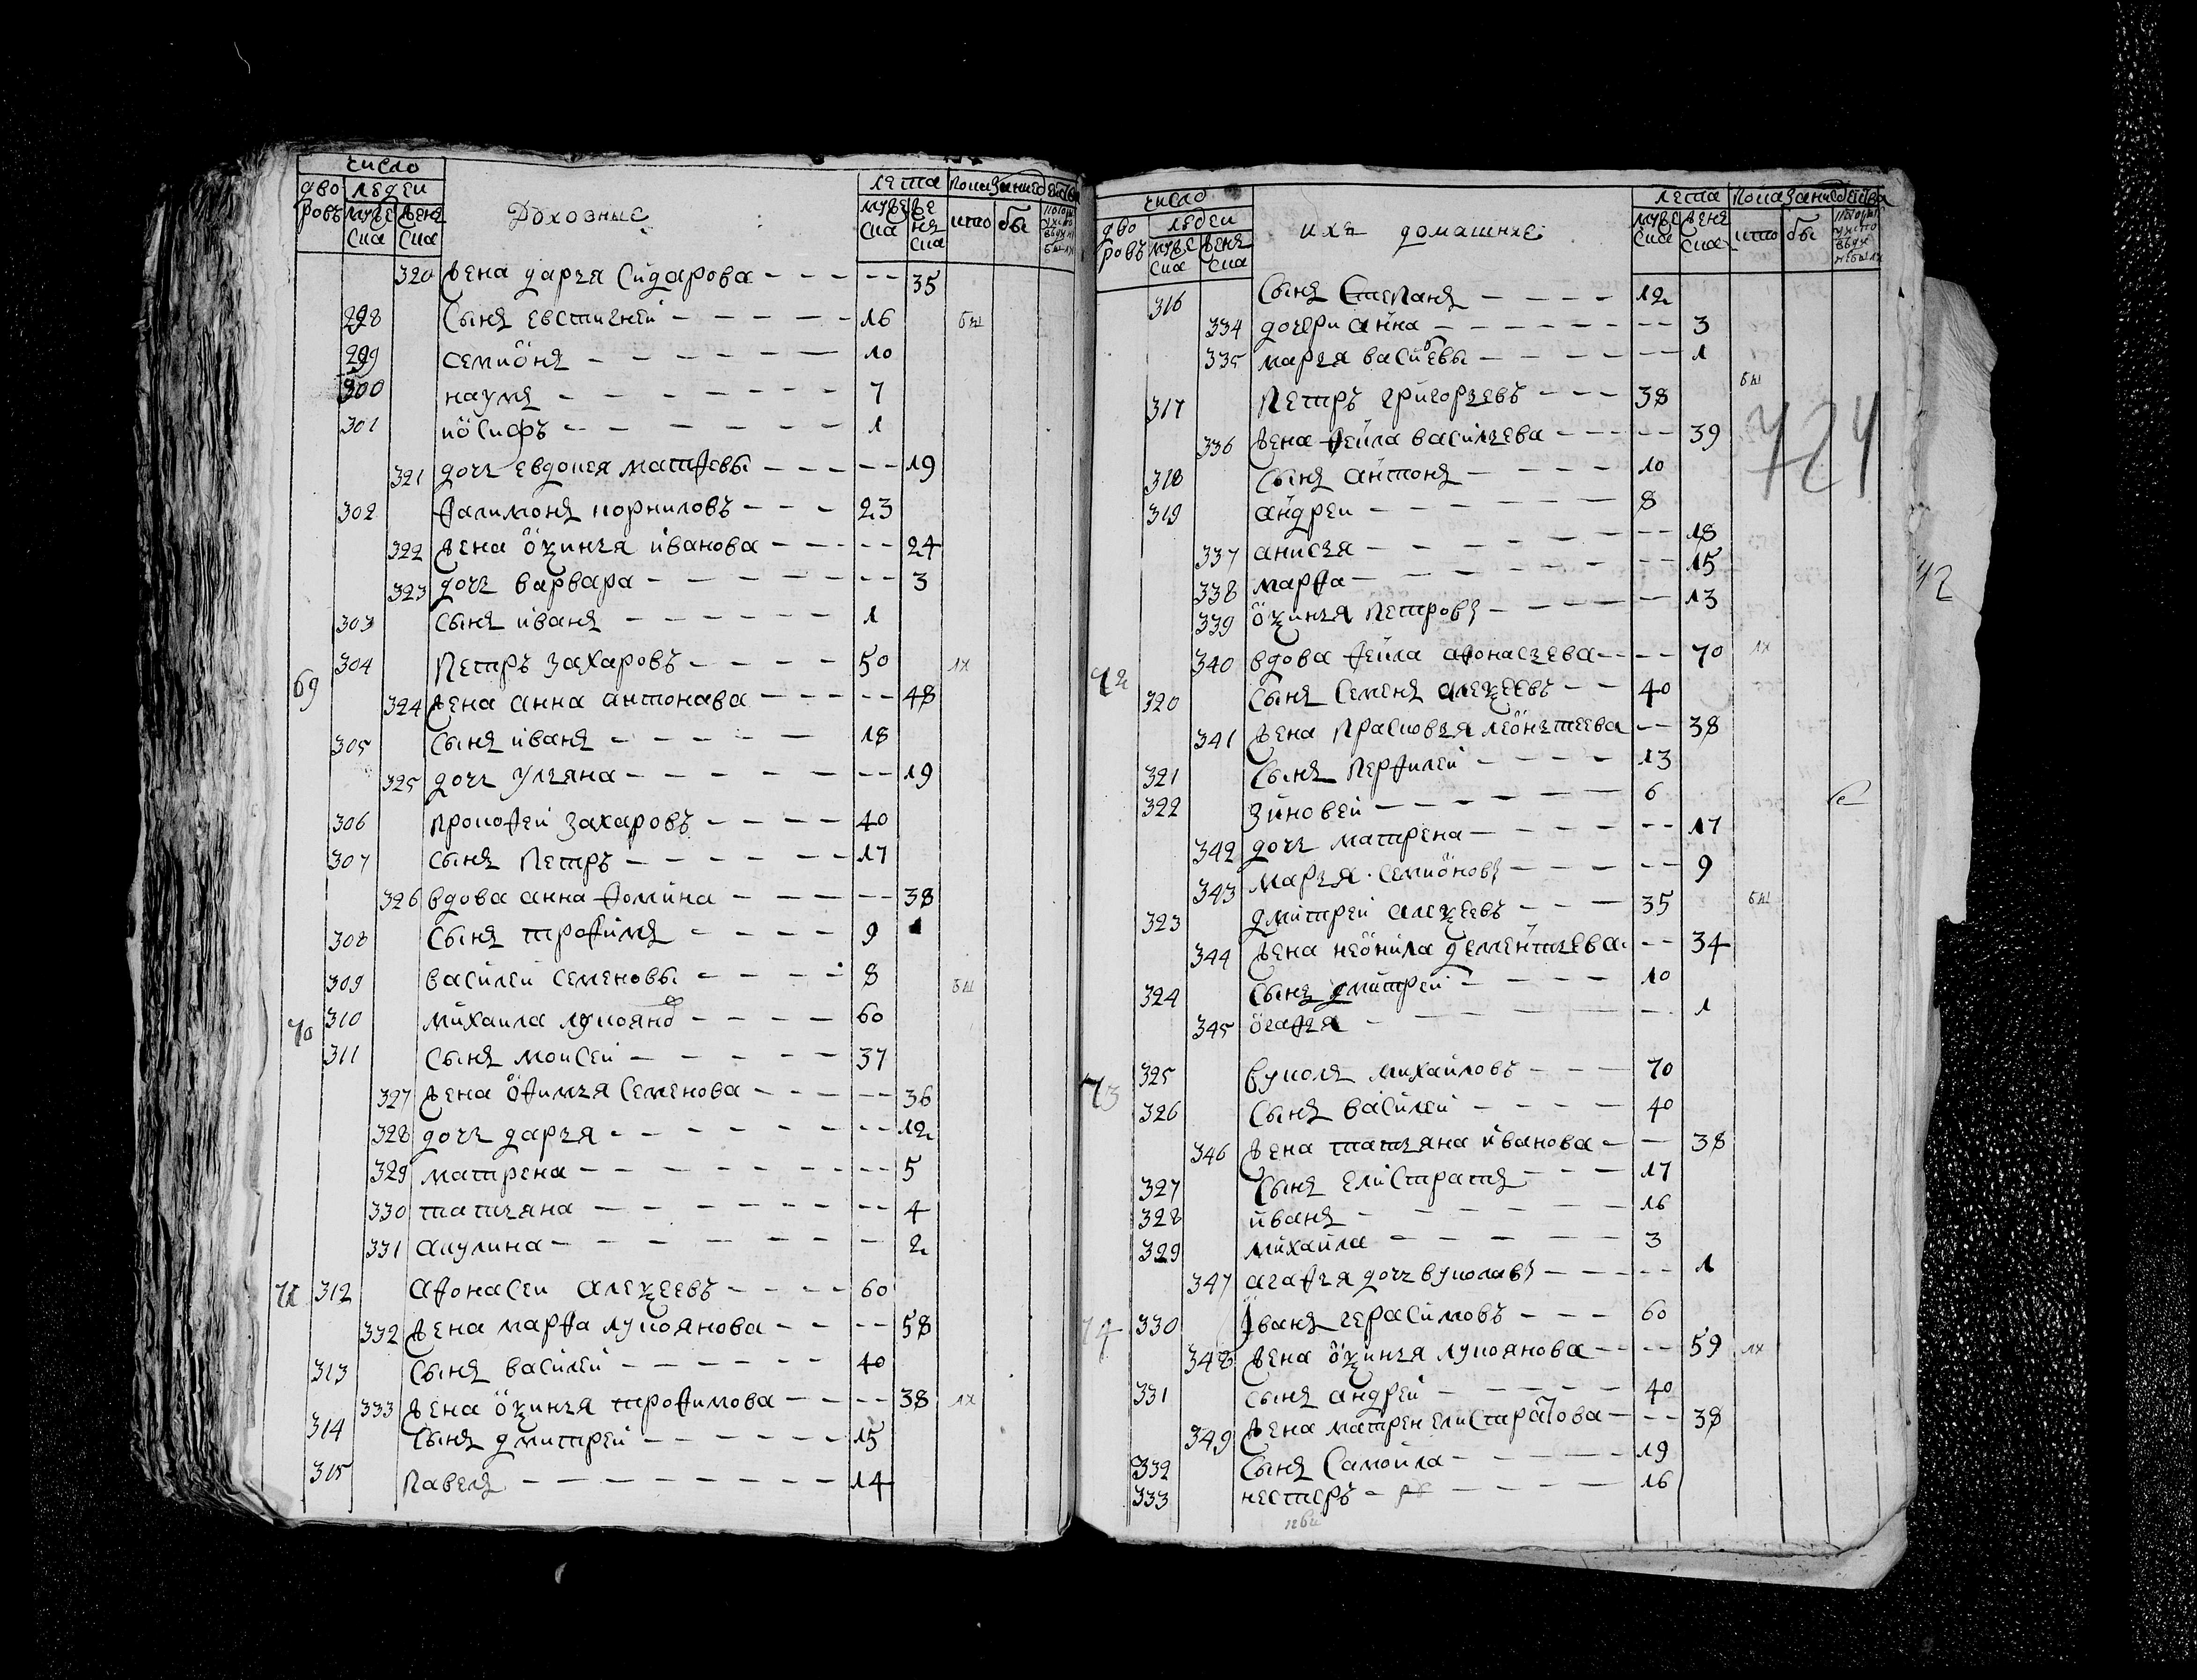 число
дво людеи лета показание действа
ровъ мужеска женска Духовные мужеска женска кто бы
320 жена дарья Сидарова 35
298 Сынъ евстигнеи 16 бы
299 семионъ 10
300 наумъ 7
301 иосифъ 1
321 дочь евдокея матфевы 19
302 Филимонъ корниловъ 23
322 жена оксинья иванова 24
323 дочь варвара 3
303 Сынъ иванъ 1
69 304 Петръ Захаровъ 50 их
324 жена анна антонава 48
305 Сынъ иванъ 18
325 дочь ульяна 19
306 прокофеи Захаровъ 40
307 сынъ Петръ 17
326 вдова анна фомина 38
308 Сынъ трофимъ 9
309 василеи семеновы 8 бы
70 310 михаила лукоянов 60
311 Сынъ моисеи 37
327 жена офимья Семенова 36
328 дочь дарья 12
329 матрена 5
330 татьяна 4
331 акулина 2
71 312 афонасеи алексеевъ 60
332 жена марфа лукоянова 58
313 Сынъ василеи 40
333 жена оксинья трофимова 38 их
314 Сынъ дмитреи 15
315 Павелъ 14
число
дво людеи лета показание действа
ровъ мужеска женска ихъ домашние мужеска женска кто бы
316 Сынъ Степанъ 12
334 дочери анна 3
335 марья васильевы 1
317 Петръ григорьевъ 38 бы
336 жена фекла васильева 39
318 Сынъ антонъ 10
319 андреи 8
337 анисья 18
338 марфа 15
339 оксинья Петровы 13
72 340 вдова фекла афонасьева 70 их
320 Сынъ Семенъ алексеевъ 40
341 жена Прасковья леонтьева 38
321 Сынъ Перфилеи 13
322 Зиновеи 6
342 дочь матрена 17
343 марья семионовы 9
323 дмитреи алексеевъ 35 бы
344 жена неонила дементьева 34
324 Сынъ дмитреи 10
345 огафья 1
73 325 вуколъ михаиловъ 70
326 Сынъ василеи 40
346 жена татьяна иванова 38
327 Сынъ елистратъ 17
328 иванъ 16
329 михаила 3
347 агафья дочь вуколавы 1
74 330 иванъ герасимовъ 60
348 жена оксинья лукоянова 59 их
331 сынъ андреи 40
349 жена матрен елистратова 38
332 Сынъ Самоила 19
333 нестеръ 16
724